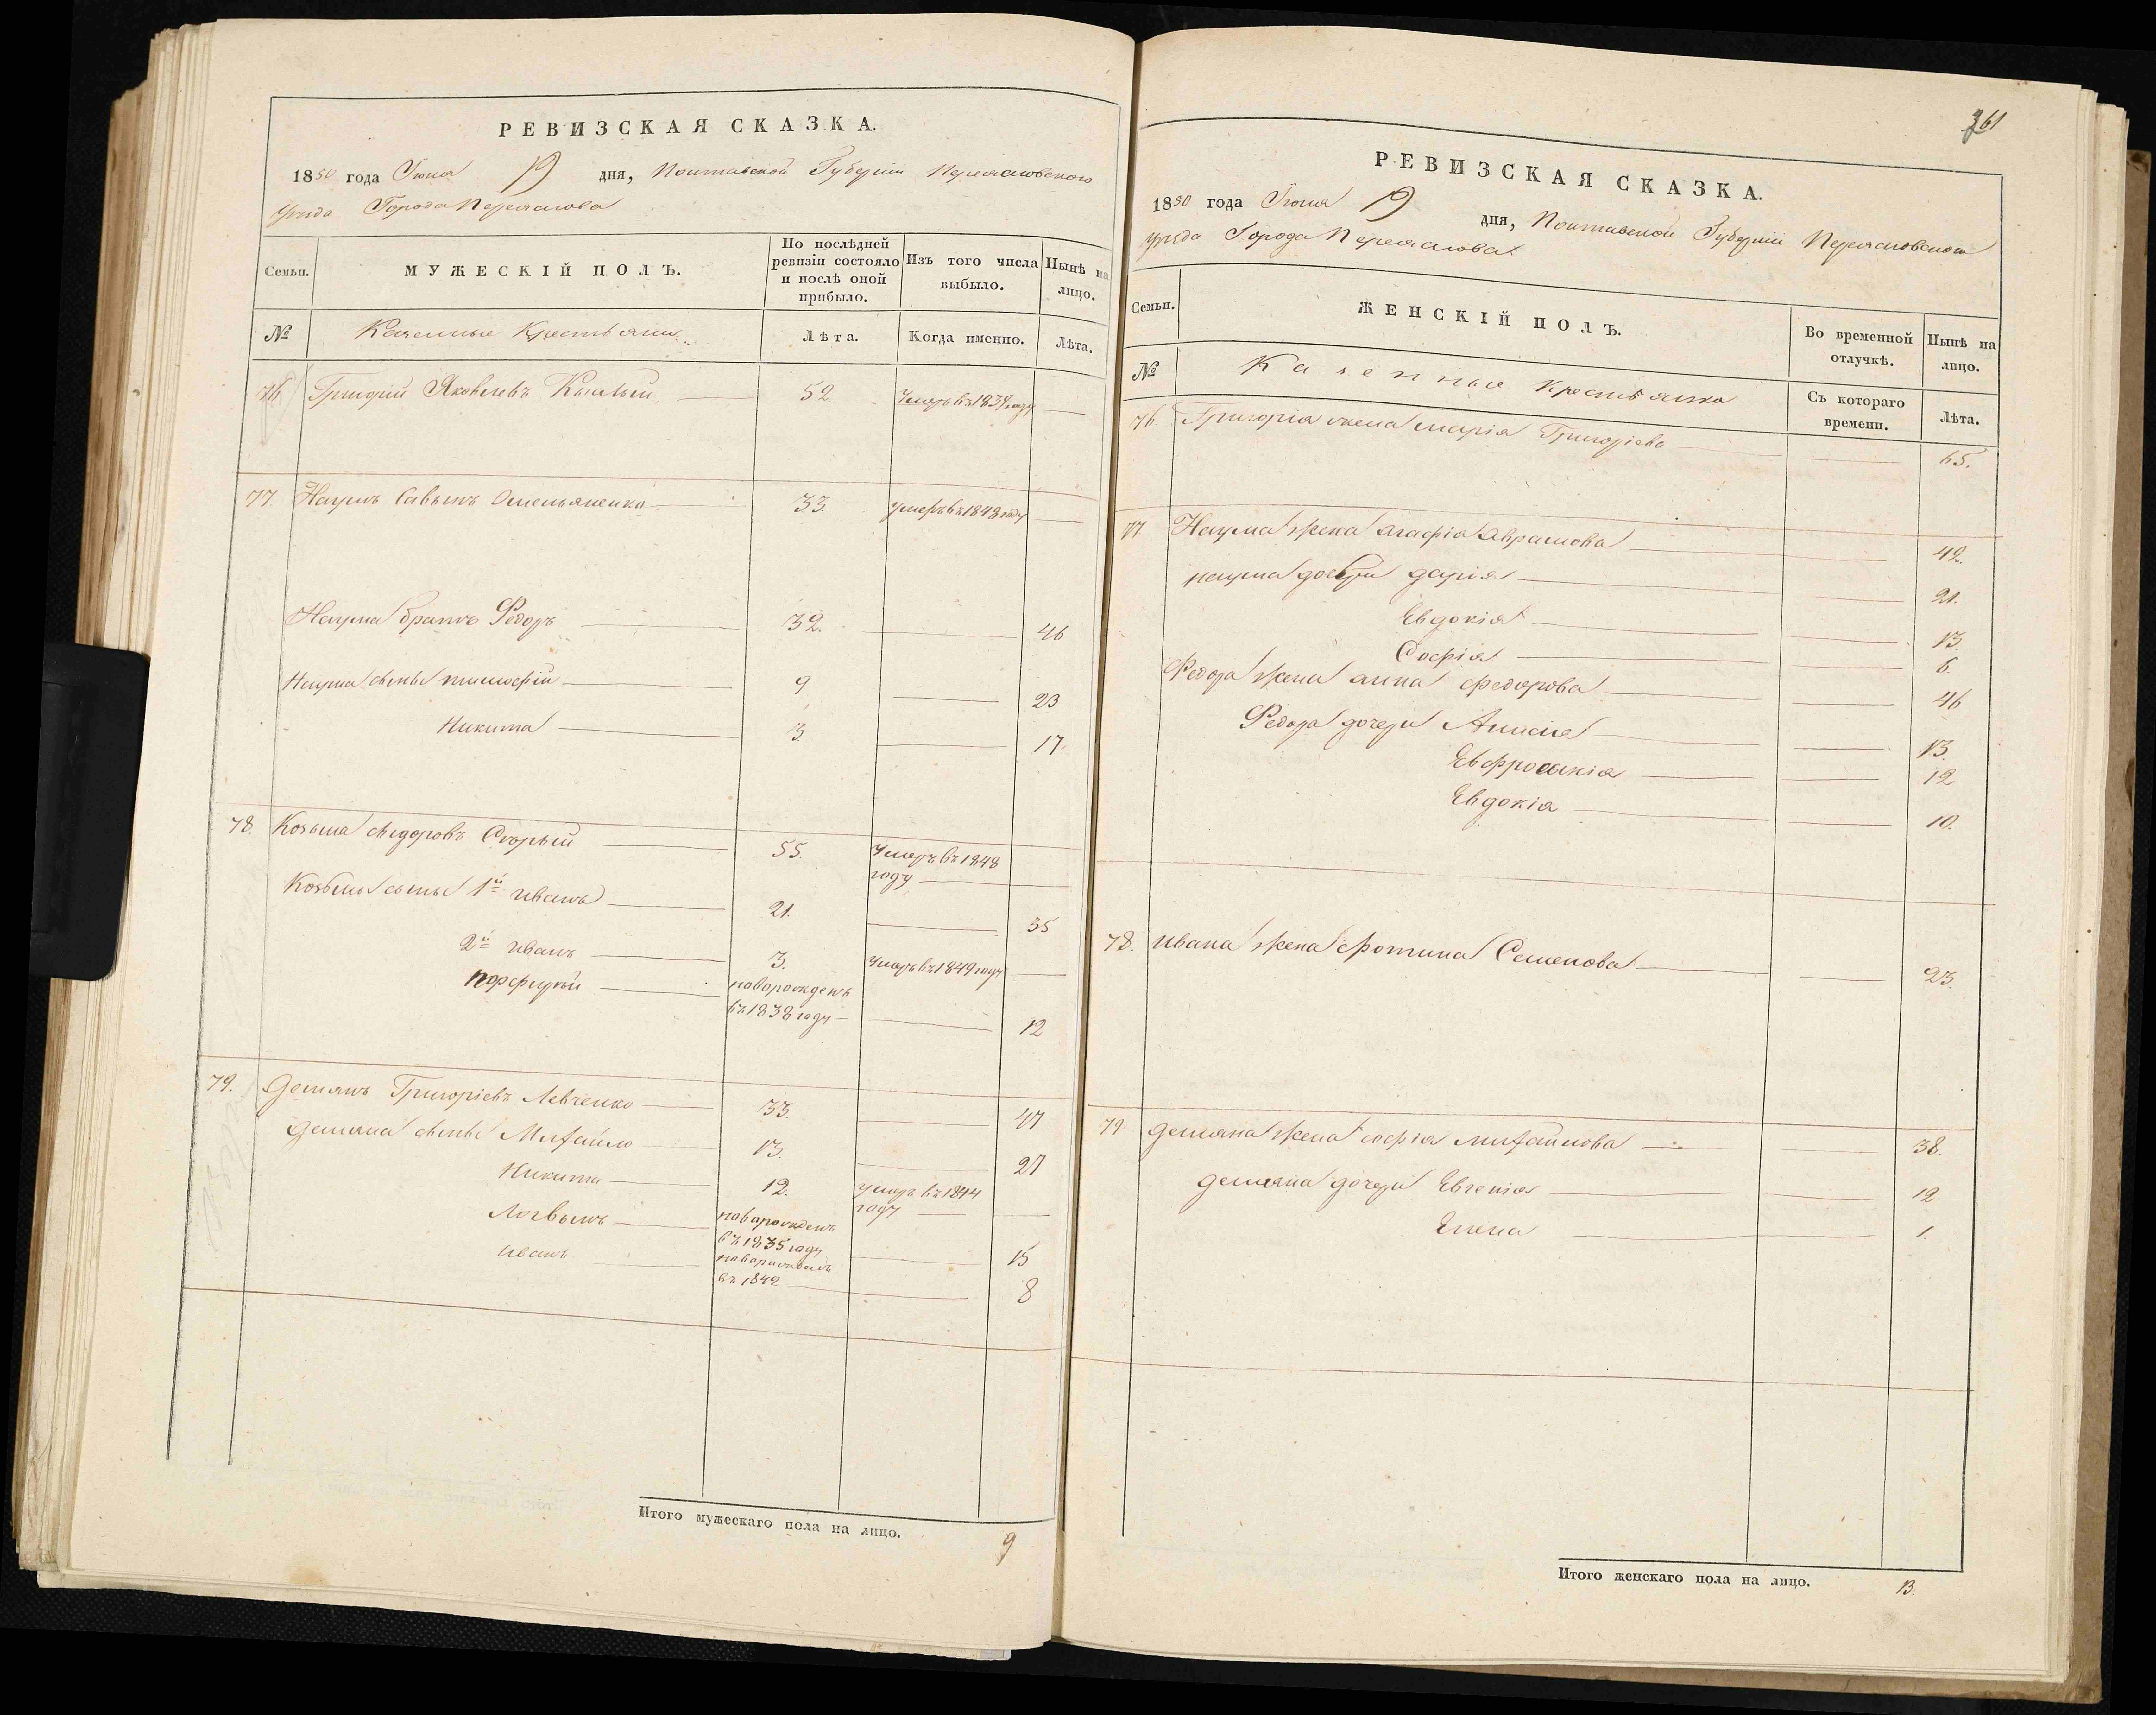 РЕВИЗСКАЯ СКАЗКА.
1850 года Іюня 19 дня, Полтавской Губерніи Переяслобского
уѣзда Города Переяслова
Семьи.
МУЖЕСКІЙ ПОЛЪ.
По послѣдней ревизіи состояло и послѣ оной прибыло.
Изъ того числа выбыло.
Нынѣ на лицо.
№
Казенные Крестьяни
Лѣта.
Когда именно.
Лѣта.
76 Григорій Яковлевъ 52. Умеръ въ 1839 году
77. Наумъ Савынъ Омельяненко 33. умеръ въ 1848 году
Наума братъ Федоръ 32. 46
Наума сыны тимофій 9 23
Никита 3. 17.
78. Козьма сыдоровъ Скорый 55. Умеръ въ 1848
году
Козьмы сыны 1й иванъ 21. 35
2й иванъ 3. Умеръ въ 1849 году
порфирій новорожденъ
въ 1838 году 12
79. Демянъ Григоріевъ Левченко 33. 47
Демяна сыны Михайло 13. 27
Никита 12. умеръ въ 1844
году
Логвынъ новорожденъ
въ 1835 году 15
иванъ новорожденъ
въ 1842 8
Итого мужескаго пола на лицо. 9
361
РЕВИЗСКАЯ СКАЗКА.
1850 года Іюня 19 дня, Полтавской Губерніи Переясловского
уѣзда Города Переяслова
Семьи.
ЖЕНСКІЙ ПОЛЪ.
Во временной отлучкѣ.
Нынѣ на лицо.
№
Казенные Крестьянки
Съ котораго времени.
Лѣта.
76. Григорія жена марія Григоріева 65.
77 Наума жена агафія аврамова 42.
наума дочери дарія 21.
Евдокія 13.
Софія 6.
Федора жена анна федорова 46
Федора дочери Анисія 13.
Евфросинія 12
Евдокія 10.
78. ивана жена фотина Семенова 23.
79 демяна жена софія михайлова 38.
демяна дочери Евгенія 12
Елена 1.
Итого женскаго пола на лицо. 13.